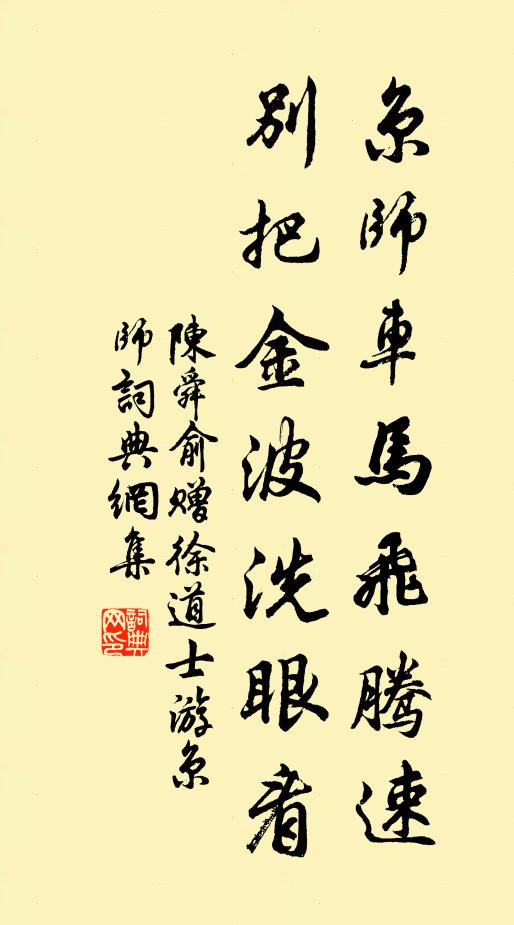 京師車馬飛騰速
別把金波洗眼看
陳舜俞贈徐道士游京
師詞典網集
詞典
网印